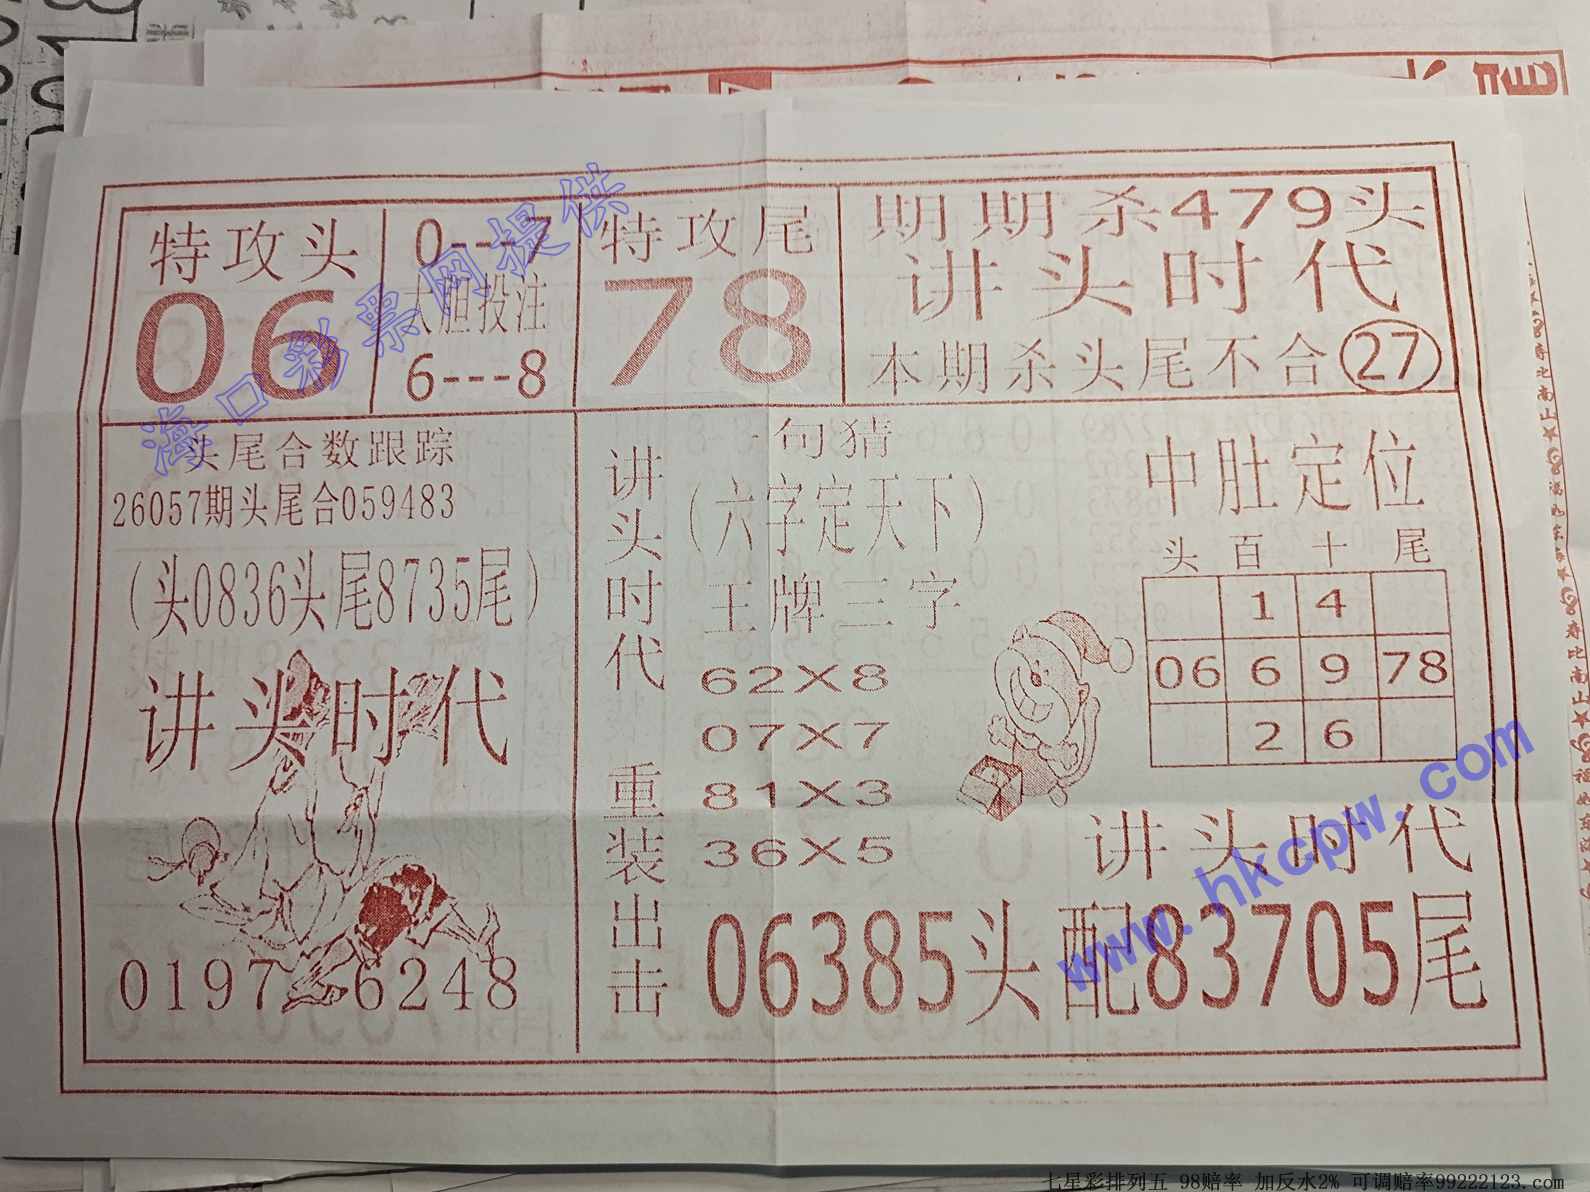 特攻头
06
0---7
大胆投注
6---8
特攻尾
78
期期杀479头
讲头时代
本期杀头尾不合 27
头尾合数跟踪
26057期头尾合059483
(头0836头尾8735尾)
讲头时代
0197 6248
讲头时代 重装出击
一句猜
(六字定天下)
王牌三字
62X8
07X7
81X3
36X5
中肚定位
头 百 十 尾
1 4
06 6 9 78
2 6
讲头时代
06385头 配83705尾
海口彩票网提供
www.hkcpw.com
七星彩排列五 98赔率 加反水2% 可调赔率99222123.com